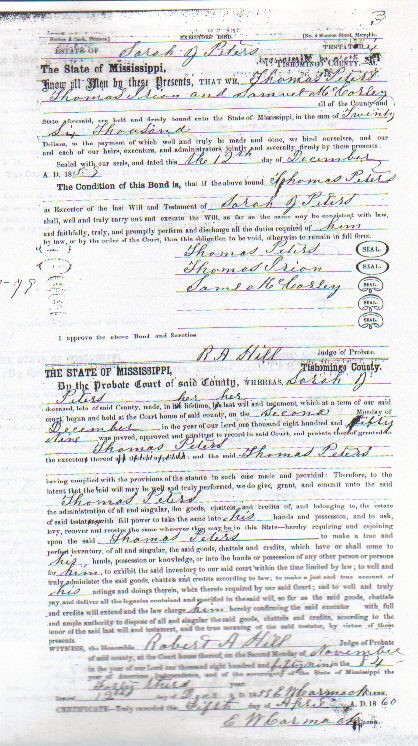 3
EXECUTORS' BOND.
[No. 4 Monroe Street, Memphis.
ESTATE OF Sarah J Peters TESTATRIX
The State of Mississippi, TISHOMINGO COUNTY.
Know all Men by these Presents, THAT WE, Thomas Peters
Thomas Prion and Samuel McCorley
all of the County and
State aforesaid, are held and firmly bound unto the State of Mississippi, in the sum of Twenty
Six Thousand
Dollars, to the payment of which well and truly be made and done, we bind ourselves, and our
and each of our heirs, executors, and administrators jointly and severally, firmly by these presents
Sealed with our seals, and dated this the 12th day of December
A. D. 185
The Condition of this Bond is, that if the above bound Thomas Peters
as Executor of the last Will and Testament of Sarah J Peters
shall, well and truly carry out and execute the Will, so far as the same may be consistent with law,
and faithfully, truly, and promptly perform and discharge all the duties required of him
by law, or by the order of the Court, then this obligation to be void, otherwise to remain in full force.
Thomas Peters SEAL.
Thomas Prion SEAL.
Saml McCorley SEAL.
SEAL.
SEAL.
I approve the above Bond and Sureties
R A Hill Judge of Probate.
THE STATE OF MISSISSIPPI, Tishomingo County.
By the Probate Court of said County, WHEREAS, Sarah J
Peters her her
deceased, late of said County, made, in lifetime, last will and testament, which at a term of our said
court, begun and held at the Court house of said county, on the Second Monday of
December in the year of our Lord one thousand eight hundred and fifty
nine was proved, approved and admitted to record in said Court, and probate thereof granted to
Thomas Peters
the executor thereof and the said Thomas Peters
having complied with the provisions of the statute in such case made and provided: Therefore, to the
intent that the said will may be well and truly performed, we do give, grant, and commit unto the said
Thomas Peters
the administration of all and singular, the goods, chattels and credits of, and belonging to, the estate
of said with full power to take the same into his hands and possession, and to ask,
levy, recover and receive the same wheresoever they may be in this State—hereby requiring and enjoining
upon the said Thomas Peters to make a true and
perfect inventory, of all and singular, the said goods, chattels and credits, which have or shall come to
his hands, possession or knowledge, or into the hands or possession of any other person or persons
for him, to exhibit the said inventory to our said court within the time limited by law; to well and
truly administer the said goods, chattels and credits according to law; to make a just and true account of
his actings and doings therein, when thereto required by our said Court; and to well and truly
pay and deliver all the legacies contained and specified in the said will, so far as the said goods, chattels
and credits will extend and the law charge him hereby confirming the said executor with full
and ample authority to dispose of all and singular the said goods, chattels and credits, according to the
tenor of the said last will and testament, and the true meaning of the said testator, by virtue of these
presents.
WITNESS, the Honorable Robert A Hill Judge of Probate
of said county, at the Court house thereof, on the Second Monday of November
in the year of our Lord one thousand eight hundred and fifty nine in the 84
year of American Independence, and of the sovereignty of the State of Mississippi the
Forty third
Issued 12th Dec A. D. 18 E W Carmack CLERK.
CERTIFICATE—Truly recorded the Fifth day of April A. D. 1860
E W Carmack CLERK.